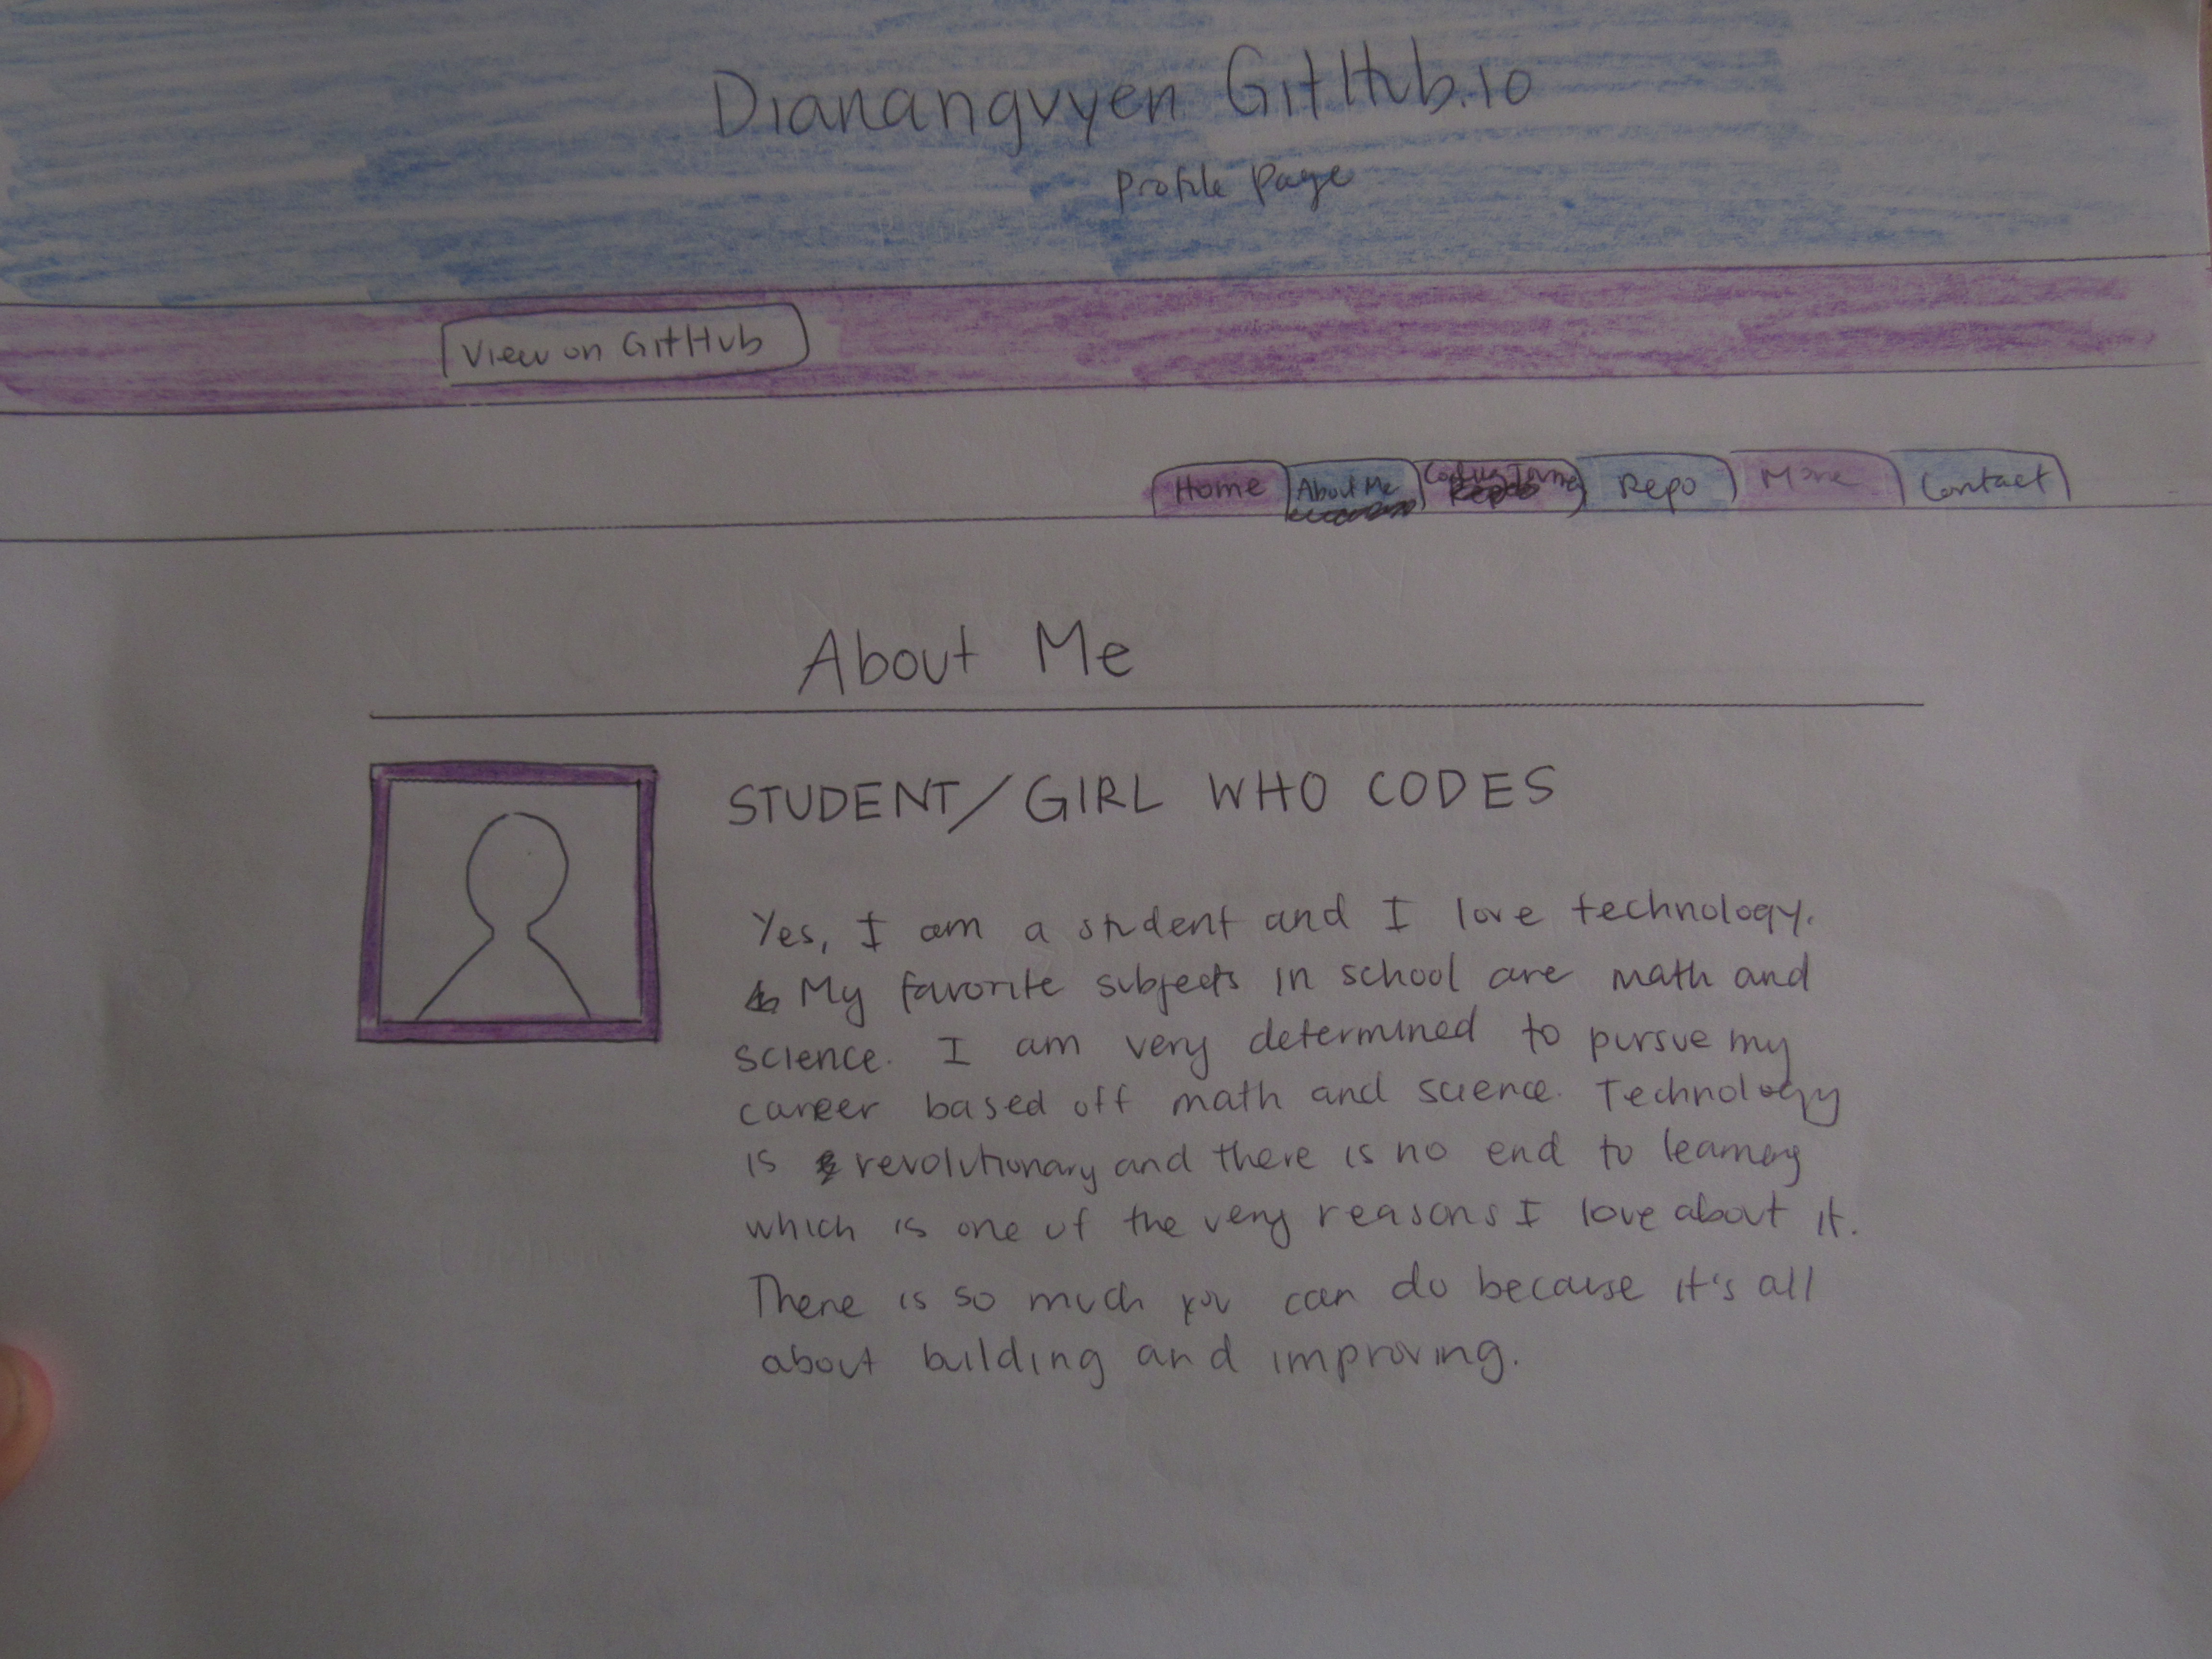 Diananguyen GitHub.io
profile page
View on GitHub
Home About Me Repo More Contact
About Me
STUDENT/GIRL WHO CODES
Yes, I am a student and I love technology.
My favorite subjects in school are math and
science. I am very determined to pursue my
career based off math and science. Technology
is revolutionary and there is no end to learning
which is one of the very reasons I love about it.
There is so much you can do because it's all
about building and improving.